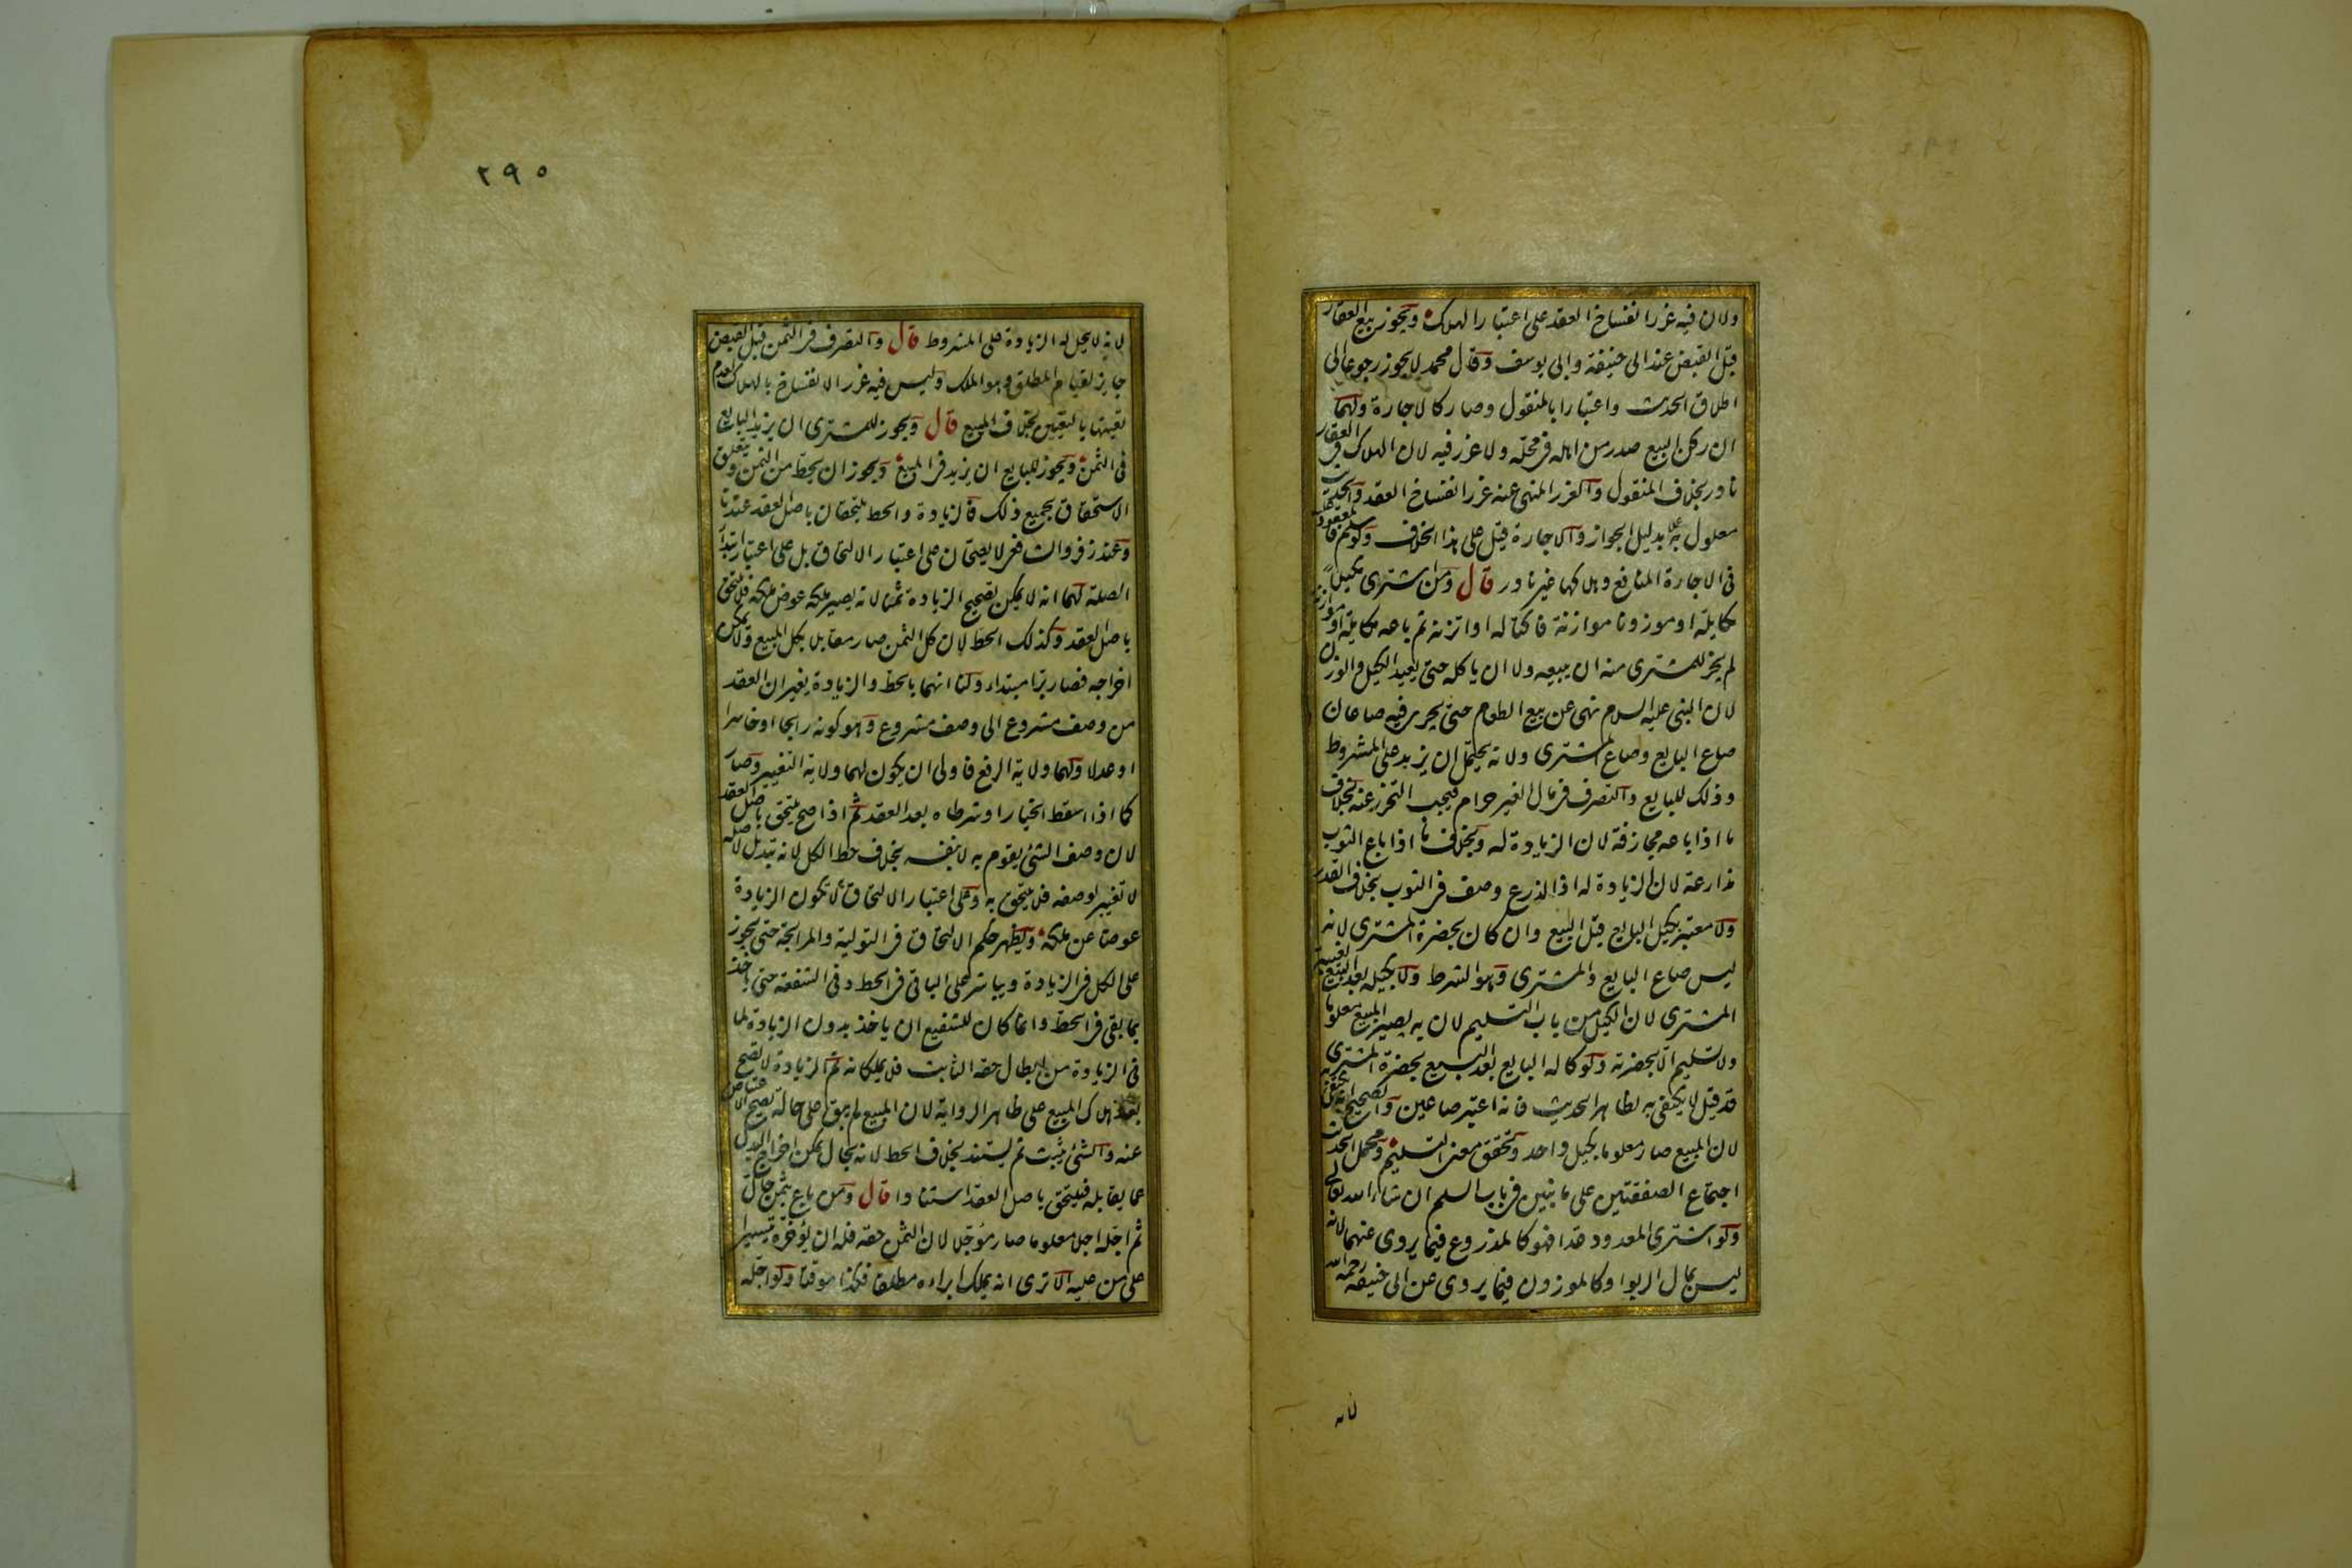 ولان فيه غرر انفساخ العقد على اعتبار الهلاك ويجوز بيع العقار
قبل القبض عند ابى حنيفة وابى يوسف وقال محمد لا يجوز رجوعا الى
اطلاق الحديث واعتبارا بالمنقول وصار كالاجارة ولهما
ان ركن البيع صدر من اهله فى محله ولا غرر فيه لان الهلاك فى العقار
نادر بخلاف المنقول والغرر المنهى عنه غرر انفساخ العقد والحديث
معلول به عملا بدليل الجواز والاجارة قيل على هذا الخلاف ولو سلم فالمعقود عليه
فى الاجارة المنافع وهلاكها غير نادر قال ومن اشترى مكيلا
مكايلة او موزونا موازنة فاكتاله او اتزنه ثم باعه مكايلة او موازنة
لم يجز للمشترى منه ان يبيعه ولا ان ياكله حتى يعيد الكيل والوزن
لان النبى عليه السلام نهى عن بيع الطعام حتى يجرى فيه صاعان
صاع البايع وصاع المشترى ولانه يحتمل ان يزيد على المشروط
وذلك للبايع والتصرف فى مال الغير حرام فيجب التحرز عنه بخلاف
ما اذا باعه مجازفة لان الزيادة له وبخلاف ما اذا باع الثوب
مذارعة لان الزيادة له اذ الذرع وصف فى الثوب بخلاف القدر
ولا معتبر بكيل البايع قبل البيع وان كان بحضرة المشترى لانه
ليس صاع البايع والمشترى وهو الشرط ولا بكيله بعد البيع بغيبة
المشترى لان الكيل من باب التسليم لان به يصير المبيع معلوما
ولا تسليم الا بحضرته ولو كاله البايع بعد البيع بحضرة المشترى
قد قيل لا يكتفى به لظاهر الحديث فانه اعتبر صاعين والصحيح انه يكتفى به
لان المبيع صار معلوما بكيل واحد وتحقق معنى التسليم ومحمل الحديث
اجتماع الصفقتين على ما نبين فى باب السلم ان شاء الله تعالى
ولو اشترى المعدود عدا فهو كالمذروع فيما يروى عنهما لانه
ليس بمال الربوا وكالموزون فيما يروى عن ابى حنيفة رحمه الله
لانه
٢٩٥
لانه لا يحل له الزيادة على المشروط قال والتصرف فى الثمن قبل القبض
جايز لقيام المطلق وهو الملك وليس فيه غرر الانفساخ بالهلاك لعدم
تعينها بالتعيين بخلاف المبيع قال ويجوز للمشترى ان يزيد البايع
فى الثمن ويجوز للبايع ان يزيد فى المبيع ويجوز ان يحط من الثمن ويتعلق
الاستحقاق بجميع ذلك فالزيادة والحط يلتحقان باصل العقد عندنا
وعند زفر والشافعى لا يصحان على اعتبار الالتحاق بل على اعتبار ابتداء
الصلة لهما انه لا يمكن تصحيح الزيادة ثمنا لانه يصير ملكه عوض ملكه فلا يلتحق
باصل العقد وكذلك الحط لان كل الثمن صار مقابلا بكل المبيع ولا يمكن
اخراجه فصار برا مبتداء ولنا انهما بالحط والزيادة يغيران العقد
من وصف مشروع الى وصف مشروع وهو كونه رابحا او خاسرا
او عدلا ولهما ولاية الرفع فاولى ان يكون لهما ولاية التغيير وصار
كما اذا اسقط الخيار او شرطاه بعد العقد ثم اذا صح يلتحق باصل العقد
لان وصف الشئ يقوم به لا بنفسه بخلاف حط الكل لانه تبديل لاصله
لا تغيير لوصفه فلا يلتحق به وعلى اعتبار الالتحاق لا تكون الزيادة
عوضا عن ملكه ويظهر حكم الالتحاق فى التولية والمرابحة حتى يجوز
على الكل فى الزيادة ويباشر على الباقى فى الحط وفى الشفعة حتى ياخذ
بما بقى فى الحط وانما كان للشفيع ان ياخذ بدون الزيادة لما
فى الزيادة من ابطال حقه الثابت فلا يملكانه ثم الزيادة لا تصح
بعد هلاك المبيع على ظاهر الرواية لان المبيع لم يبق على حالة تصح الاعتياض
عنه والشئ يثبت ثم يستند بخلاف الحط لانه بحال يمكن اخراج البدل
عما يقابله فيلتحق باصل العقد استنادا قال ومن باع بثمن حال
ثم اجله اجلا معلوما صار مؤجلا لان الثمن حقه فله ان يؤخره تيسيرا
على من عليه الا ترى انه يملك ابراءه مطلقا فكذا موقتا ولو اجله